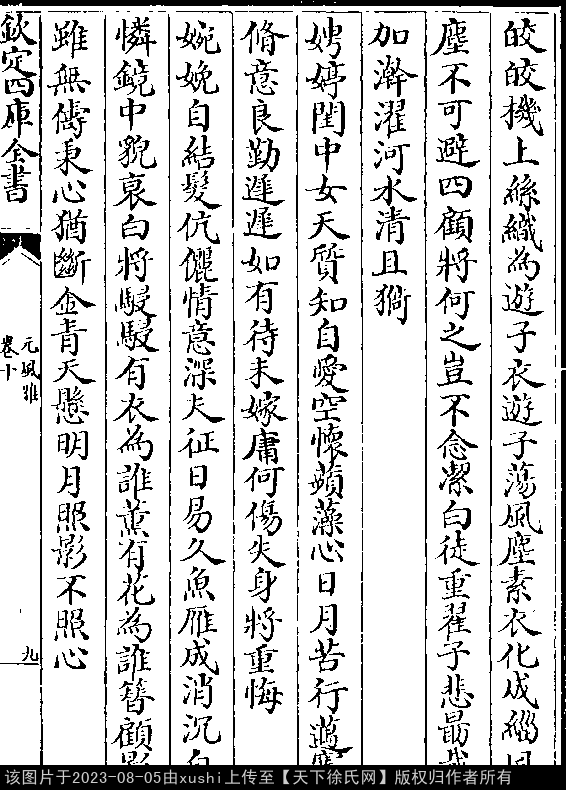 皎皎機上絲織為遊子衣遊子蕩風塵素衣化成緇風
塵不可避四顧將何之豈不念潔白徒重翟子悲勗哉
加澣濯河水清且猗
娉婷閨中女天質知自愛空懷蘋藻心日月苦行邁
脩意良勤遲遲如有待未嫁庸何傷失身將重悔
婉娩自結髮伉儷情意深夫征日易久魚雁成消沉自
憐鏡中貌衰白將駸駸有衣為誰薰有花為誰簪顧影
雖無儔秉心猶斷金青天懸明月照影不照心
欽定四庫全書
元風雅
卷十
九
该图片于2023-08-05由xushi上传至【天下徐氏网】版权归作者所有